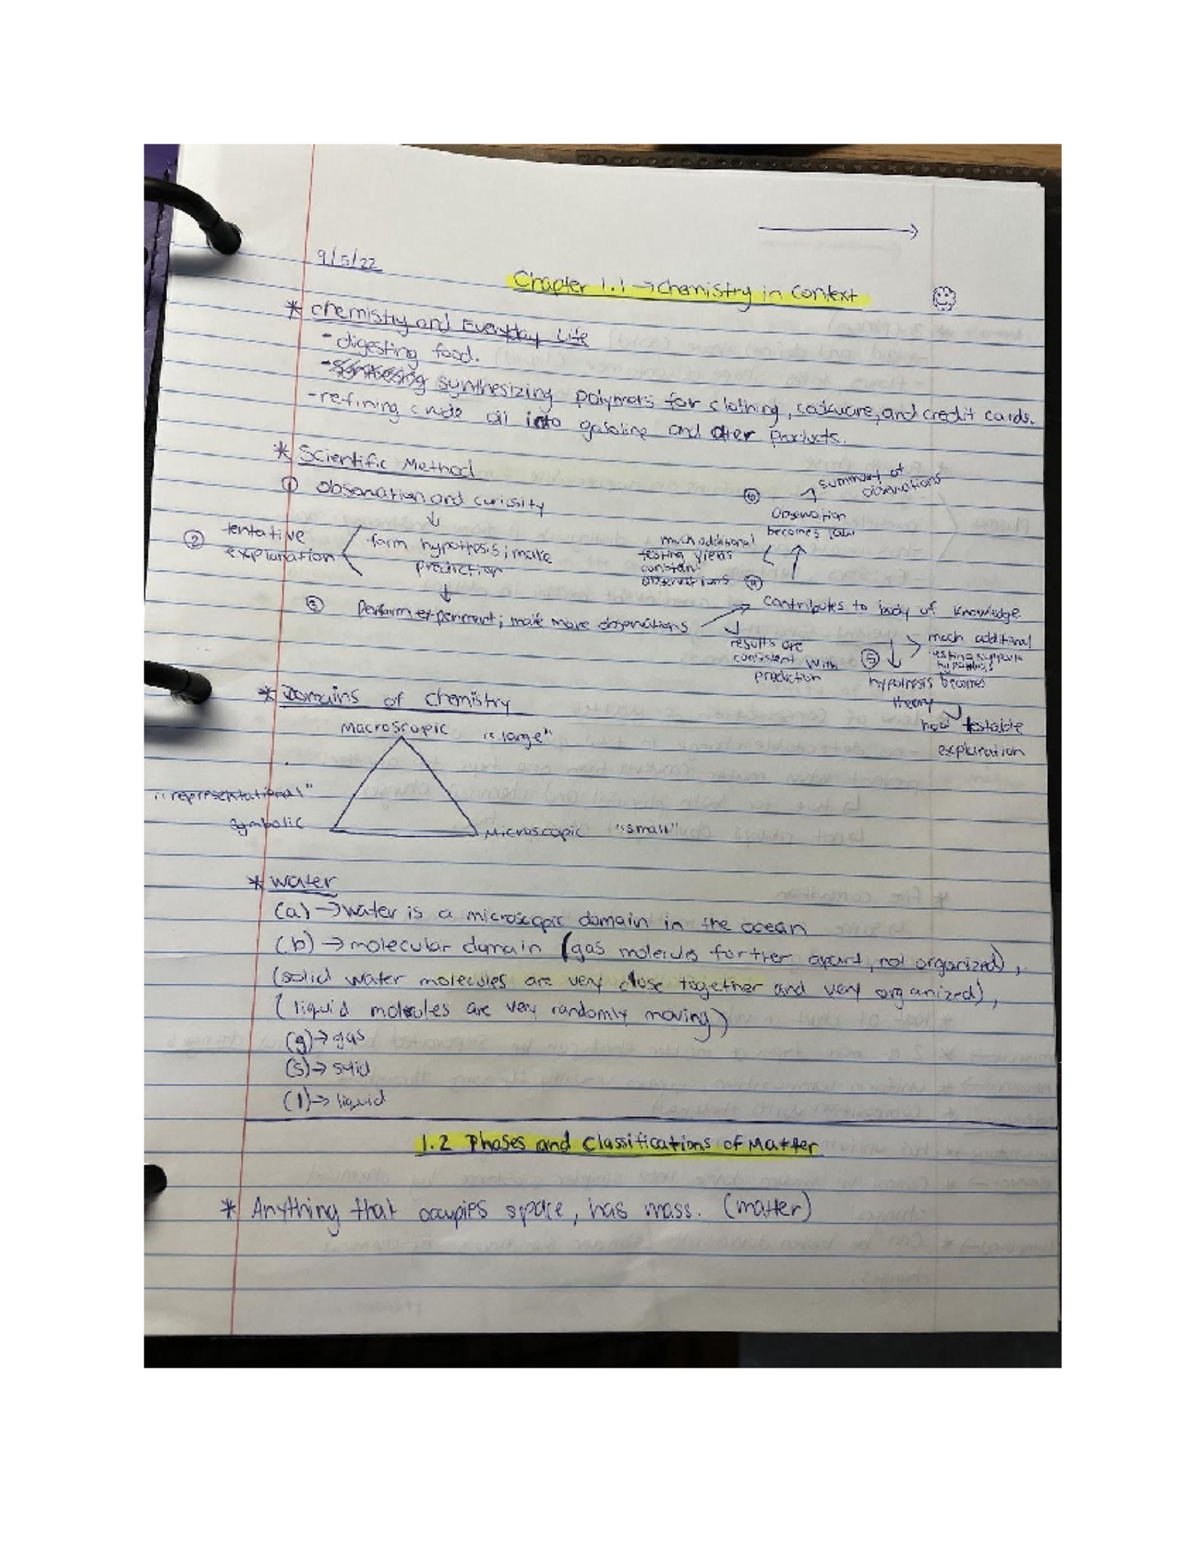 9/5/22
Chapter 1.1 → Chemistry in Context
* Chemistry and Everyday Life
- digesting food.
- synthesizing polymers for clothing, cookware, and credit cards.
- refining crude oil into gasoline and other products.
* Scientific Method
① observation and curiosity
② tentative explanation
form hypothesis; make prediction
③ Perform experiment; make more observations
results are
consistent with
prediction
contributes to body of knowledge
much additional
testing yields
constant
observations
⑥
observation
becomes law
summary of
observations
⑤
much additional
testing supports
hypothesis
hypothesis becomes
theory
testable
explanation
* Domains of Chemistry
Macroscopic "large"
"representational"
Symbolic
Microscopic "small"
* Water
(a) → water is a microscopic domain in the ocean
(b) → molecular domain (gas molecules further apart, not organized),
(solid water molecules are very close together and very organized),
(liquid molecules are very randomly moving)
(g) → gas
(s) → solid
(l) → liquid
1.2 Phases and Classifications of Matter
* Anything that occupies space, has mass. (matter)